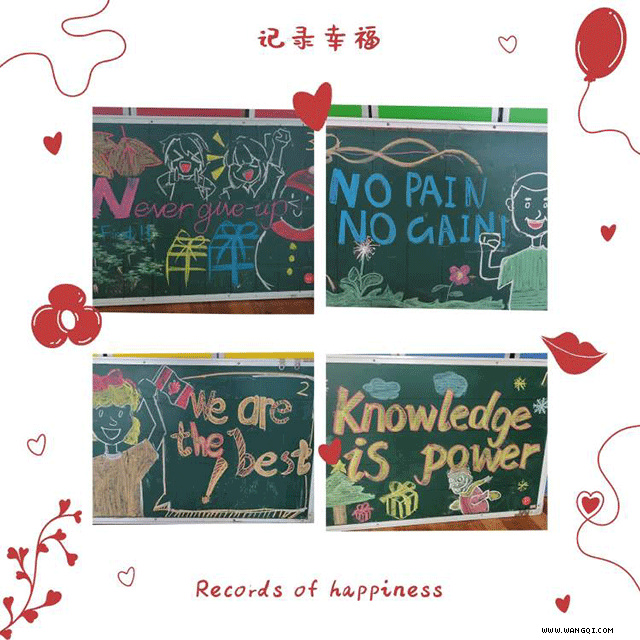 记录幸福
Never give up
NO PAIN
NO GAIN!
We are
the best
2
Knowledge
is power
Records of happiness
WWW.WANGQI.COM